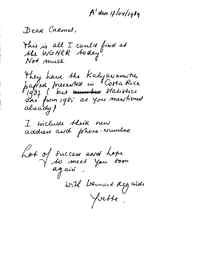 A'dam 11/04/1989
Dear Carmel,
This is all I could find at
the WGNRR today.
Not much
They have the Kalyanamitra
paper presented in Costa Rica
1987 ( but statistics
are from 1981 as you mentioned
already)
I include their new
address and phone-number
Lot of success and hope
to meet you soon
again.
With warmest regards
Yvette.